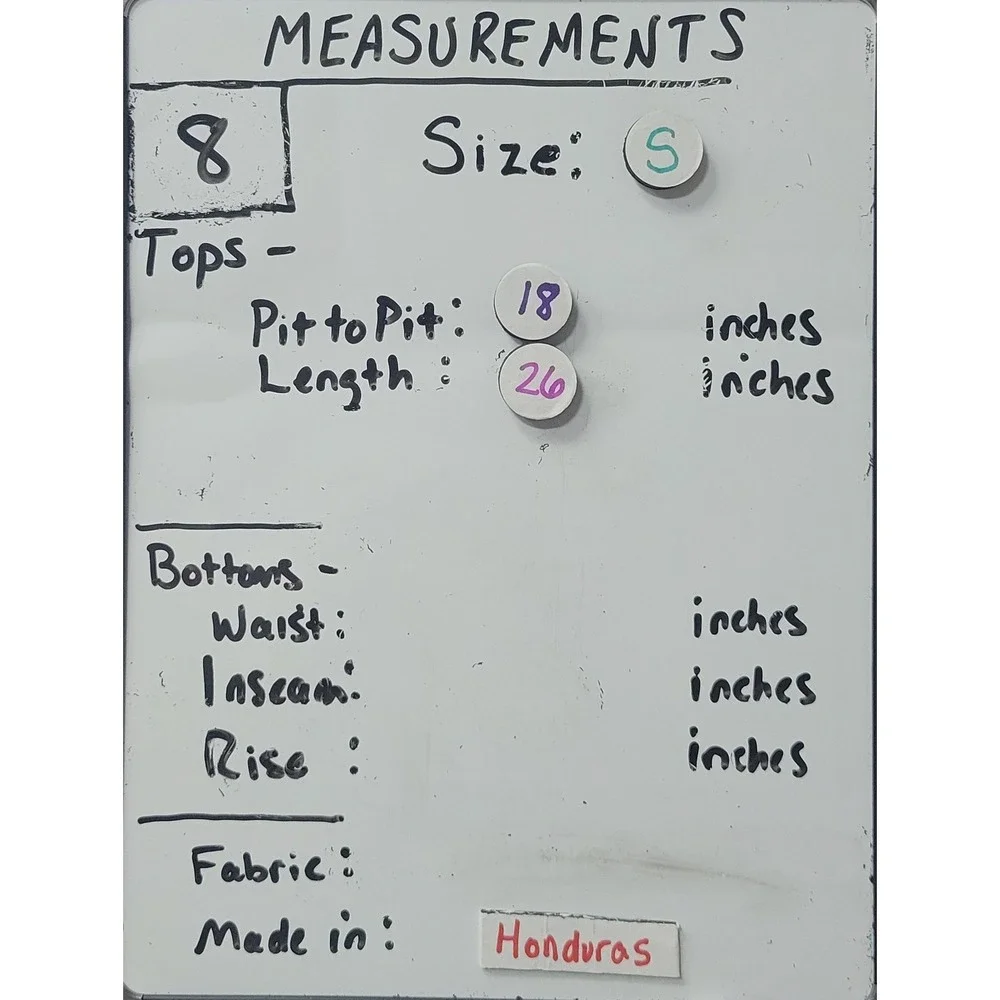 MEASUREMENTS
8
Size: S
Tops -
Pit to Pit: 18 inches
Length: 26 inches
Bottoms -
Waist: inches
Inseam: inches
Rise: inches
Fabric:
Made in: Honduras